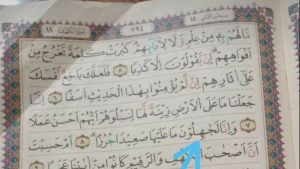 ٢٩٤
مَّا لَهُم بِهِۦ مِنْ عِلْمٍ وَلَا لِأَبَآئِهِمْ كَبُرَتْ كَلِمَةً تَخْرُجُ مِنْ
أَفْوَٰهِهِمْ إِن يَقُولُونَ إِلَّا كَذِبًا ٥ فَلَعَلَّكَ بَٰخِعٌ نَّفْسَكَ
عَلَىٰٓ ءَاثَٰرِهِمْ إِن لَّمْ يُؤْمِنُوا۟ بِهَٰذَا ٱلْحَدِيثِ أَسَفًا ٦ إِنَّا
جَعَلْنَا مَا عَلَى ٱلْأَرْضِ زِينَةً لَّهَا لِنَبْلُوَهُمْ أَيُّهُمْ أَحْسَنُ عَمَلًا
٧ وَإِنَّا لَجَٰهِلُونَ مَا عَلَيْهَا صَعِيدًا جُرُزًا ٨ أَمْ حَسِبْتَ
أَنَّ أَصْحَٰبَ ٱلْكَهْفِ وَٱلرَّقِيمِ كَانُوا۟ مِنْ ءَايَٰتِنَا عَجَبًا ٩